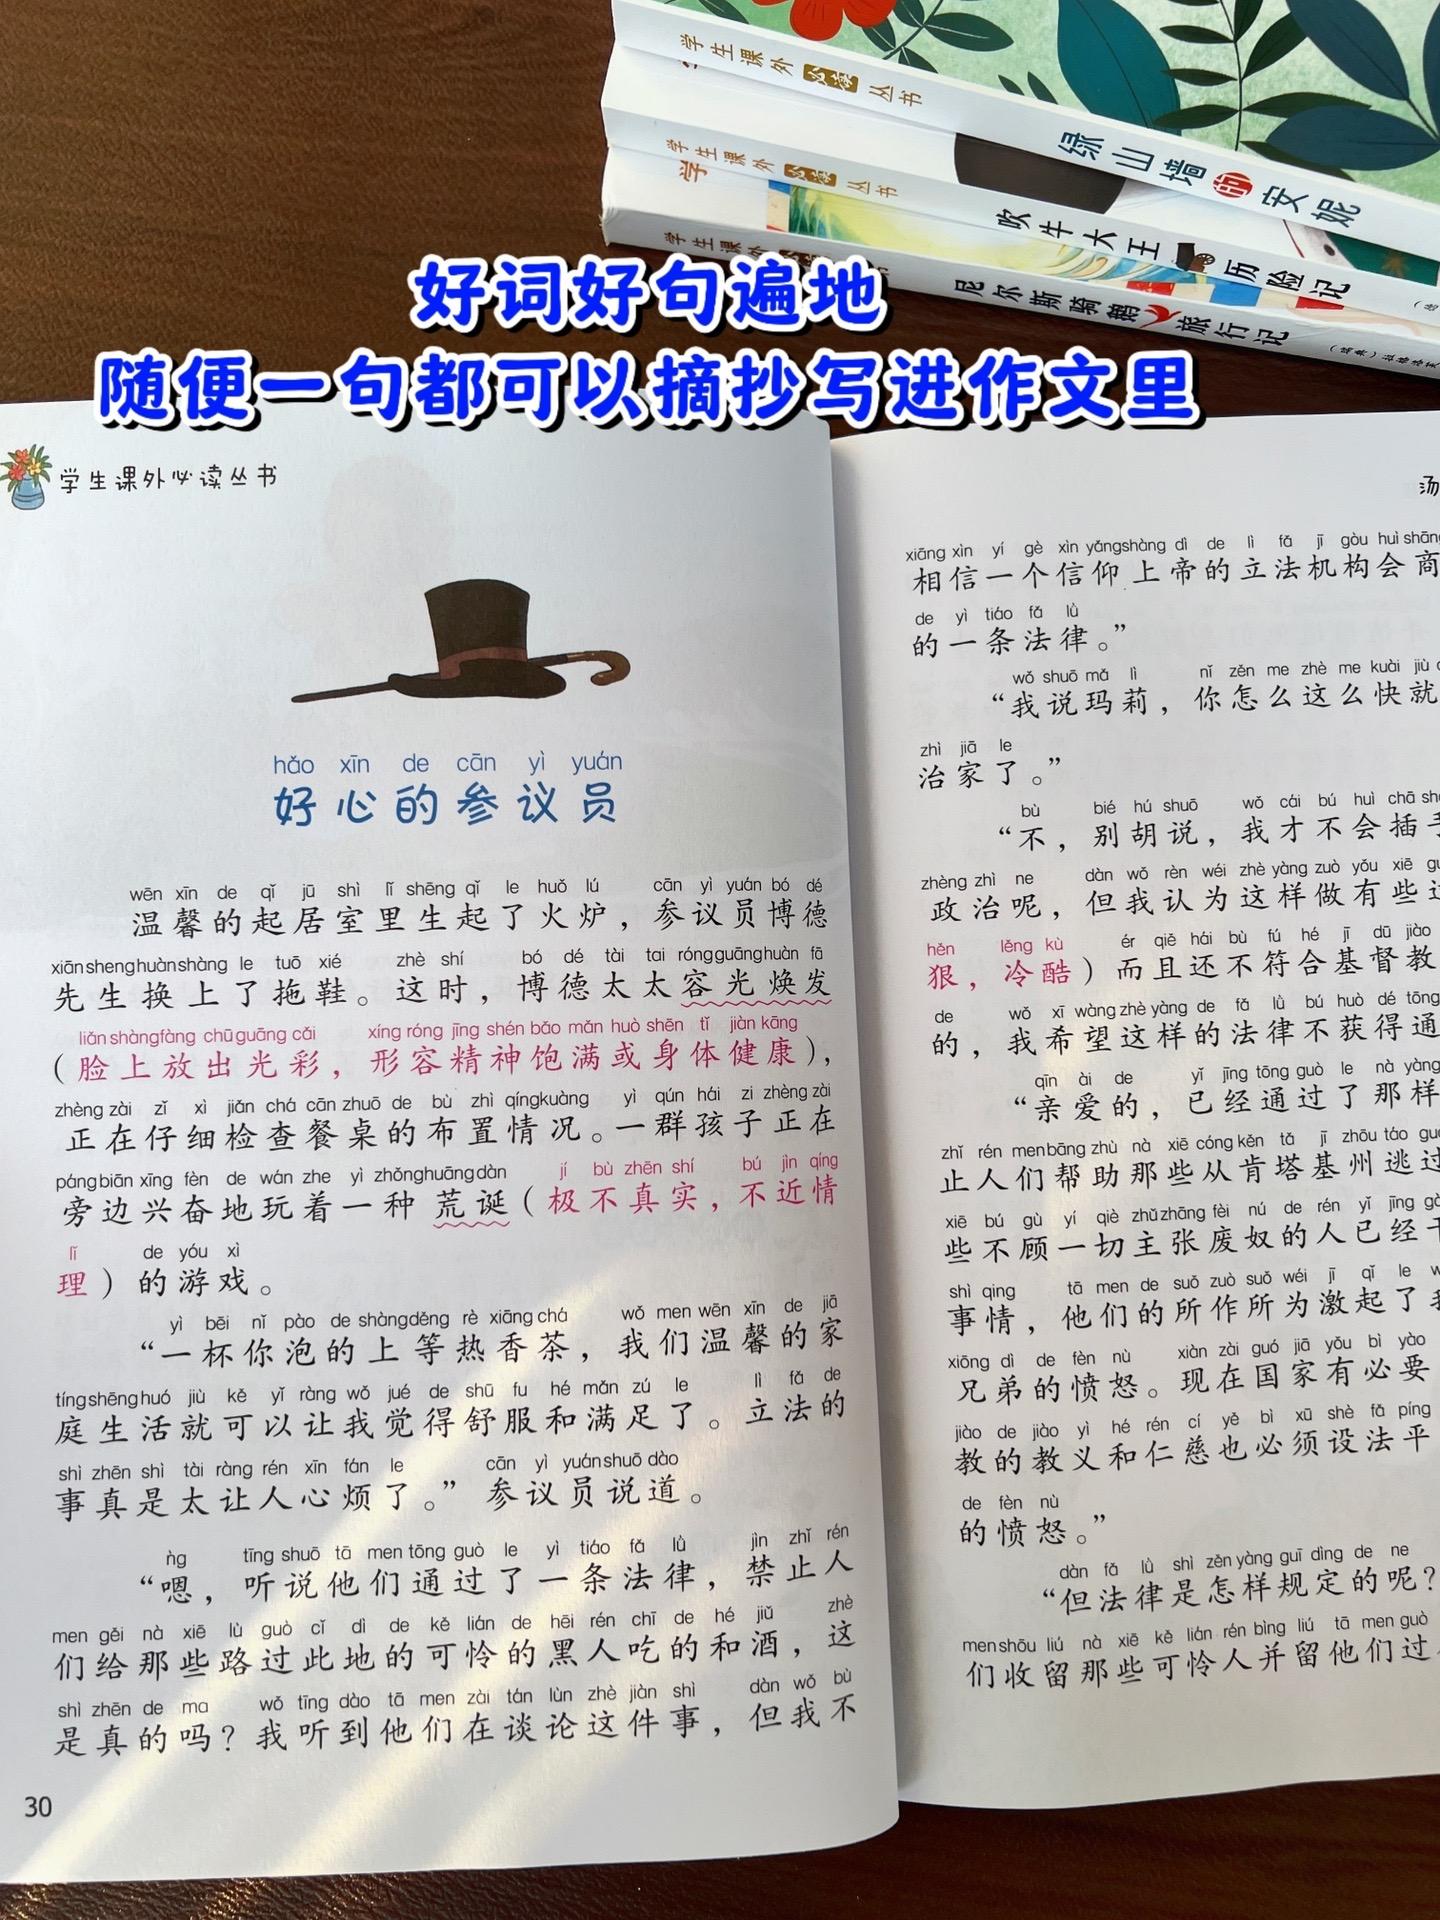 学生课外必读丛书
绿山墙的安妮
学生课外必读丛书
吹牛大王历险记
学生课外
尼尔斯骑鹅旅行记
好词好句遍地
随便一句都可以摘抄写进作文里
学生课外必读丛书
hǎo xīn de cān yì yuán
好心的参议员
wēn xīn de qǐ jū shì lǐ shēng qǐ le huǒ lú cān yì yuán bó dé
温馨的起居室里生起了火炉，参议员博德
xiān sheng huàn shàng le tuō xié zhè shí bó dé tài tai róng guāng huàn fā
先生换上了拖鞋。这时，博德太太容光焕发
liǎn shàng fàng chū guāng cǎi xíng róng jīng shén bǎo mǎn huò shēn tǐ jiàn kāng
（脸上放出光彩，形容精神饱满或身体健康），
zhèng zài zǐ xì jiǎn chá cān zhuō de bù zhì qíng kuàng yì qún hái zi zhèng zài
正在仔细检查餐桌的布置情况。一群孩子正在
páng biān xīng fèn de wán zhe yì zhǒng huāng dàn jí bù zhēn shí bú jìn qíng
旁边兴奋地玩着一种荒诞（极不真实，不近情
lǐ de yóu xì
理）的游戏。
yì bēi nǐ pào de shàng děng rè xiāng chá wǒ men wēn xīn de jiā
“一杯你泡的上等热香茶，我们温馨的家
tíng shēng huó jiù kě yǐ ràng wǒ jué de shū fu hé mǎn zú le lì fǎ de
庭生活就可以让我觉得舒服和满足了。立法的
shì zhēn shì tài ràng rén xīn fán le cān yì yuán shuō dào
事真是太让人心烦了。”参议员说道。
ǹg tīng shuō tā men tōng guò le yì tiáo fǎ lǜ jìn zhǐ rén
“嗯，听说他们通过了一条法律，禁止人
men gěi nà xiē lù guò cǐ dì de kě lián de hēi rén chī de hé jiǔ zhè
们给那些路过此地的可怜的黑人吃的和酒，这
shì zhēn de ma wǒ tīng dào tā men zài tán lùn zhè jiàn shì dàn wǒ bù
是真的吗？我听到他们在谈论这件事，但我不
30
汤
xiāng xìn yí gè xìn yǎng shàng dì de lì fǎ jī gòu huì shāng
相信一个信仰上帝的立法机构会商
de yì tiáo fǎ lǜ
的一条法律。”
wǒ shuō mǎ lì nǐ zěn me zhè me kuài jiù
“我说玛莉，你怎么这么快就
zhì jiā le
治家了。”
bù bié hú shuō wǒ cái bú huì chā
“不，别胡说，我才不会插手
zhèng zhì ne dàn wǒ rèn wéi zhè yàng zuò yǒu xiē
政治呢，但我认为这样做有些
hěn lěng kù ér qiě hái bù fú hé jī dū jiào
狠，冷酷）而且还不符合基督教
de wǒ xī wàng zhè yàng de fǎ lǜ bú huò dé tōng
的，我希望这样的法律不获得通
qīn ài de yǐ jīng tōng guò le nà yàng
“亲爱的，已经通过了那样
zhǐ rén men bāng zhù nà xiē cóng kěn tǎ jī zhōu táo
止人们帮助那些从肯塔基州逃过
xiē bú gù yí qiè zhǔ zhāng fèi nú de rén yǐ jīng
些不顾一切主张废奴的人已经干
shì qing tā men de suǒ zuò suǒ wéi jī qǐ le
事情，他们的所作所为激起了我
xiōng dì de fèn nù xiàn zài guó jiā yǒu bì yào
兄弟的愤怒。现在国家有必要
jiào de jiào yì hé rén cí yě bì xū shè fǎ píng
教的教义和仁慈也必须设法平
de fèn nù
的愤怒。”
dàn fǎ lǜ shì zěn yàng guī dìng de ne
“但法律是怎样规定的呢？
men shōu liú nà xiē kě lián rén bìng liú tā men guò
们收留那些可怜人并留他们过